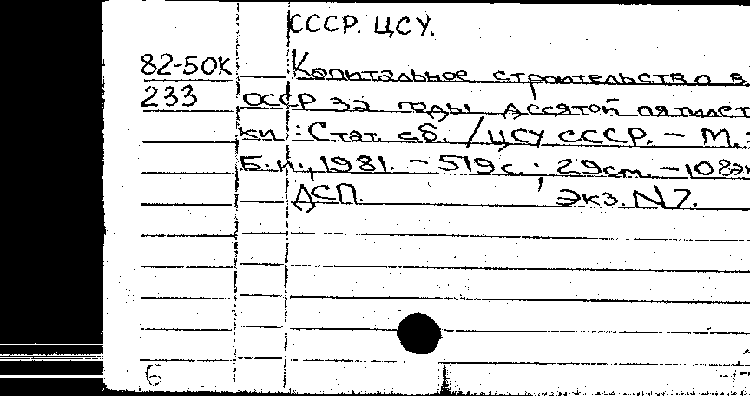 СССР. ЦСУ.
82-50К Капитальное строительство в
233 СССР за годы десятой пятилет
ки : Стат. сб. / ЦСУ СССР. – М. :
Б.и., 1981. – 519 с. ; 29 см. – 108 эк
ДСП. Экз. N7.
6